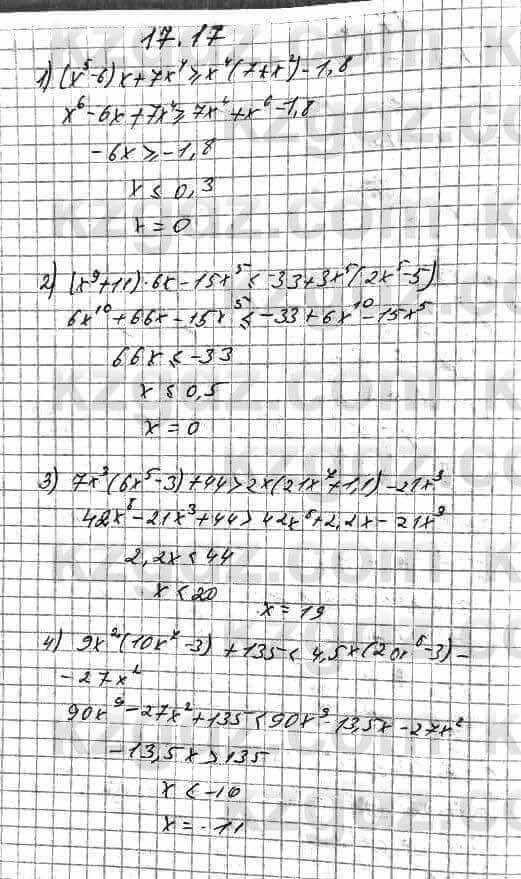 17.17
1) (x⁵-6)x+7x⁴⩾x⁴(7+x²)-1,8
x⁶-6x+7x⁴⩾7x⁴+x⁶-1,8
-6x⩾-1,8
x⩽0,3
x=0
2) (x⁹+11)·6x-15x⁵⩽-33+3x⁵(2x⁵-5)
6x¹⁰+66x-15x⁵⩽-33+6x¹⁰-15x⁵
66x⩽-33
x⩽0,5
x=0
3) 7x³(6x⁵-3)+44>2x(21x⁷+1,1)-21x³
42x⁸-21x³+44>42x⁸+2,2x-21x³
2,2x<44
x<20
x=19
4) 9x²(10x⁷-3)+135<4,5x(20x⁸-3)-
-27x²
90x⁹-27x²+135<90x⁹-13,5x-27x²
-13,5x>135
x<-10
x=-11